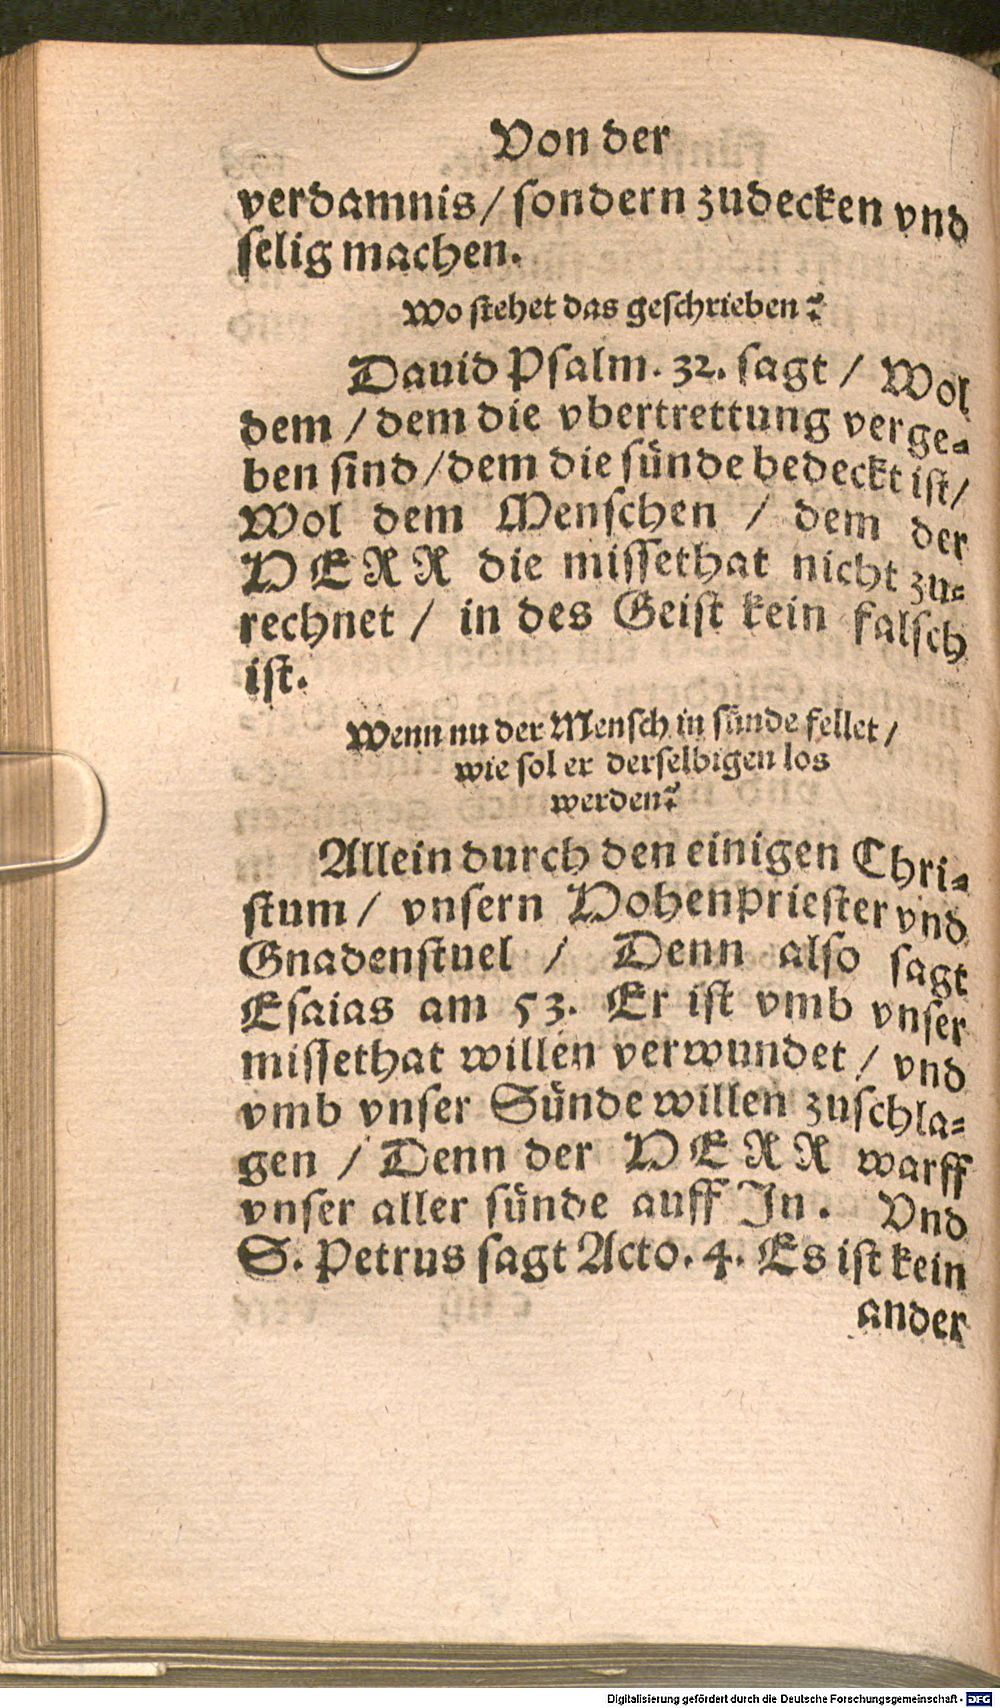 Von der
verdamnis/ sondern zudecken vnd
selig machen.
Wo stehet das geschrieben?
Dauid Psalm. 32. sagt / Wol
dem / dem die vbertrettung verge-
ben sind/dem die sünde bedeckt ist/
Wol dem Menschen / dem der
HERR die missethat nicht zu-
rechnet / in des Geist kein falsch
ist.
Wenn nu der Mensch in sünde fellet/
wie sol er derselbigen los
werden?
Allein durch den einigen Chri-
stum/ vnsern Hohenpriester vnd
Gnadenstuel / Denn also sagt
Esaias am 53. Er ist vmb vnser
missethat willen verwundet/ vnd
vmb vnser Sünde willen zuschla-
gen / Denn der HERR warff
vnser aller sünde auff In. Vnd
S. Petrus sagt Acto. 4. Es ist kein
ander
Digitalisierung gefördert durch die Deutsche Forschungsgemeinschaft - DFG